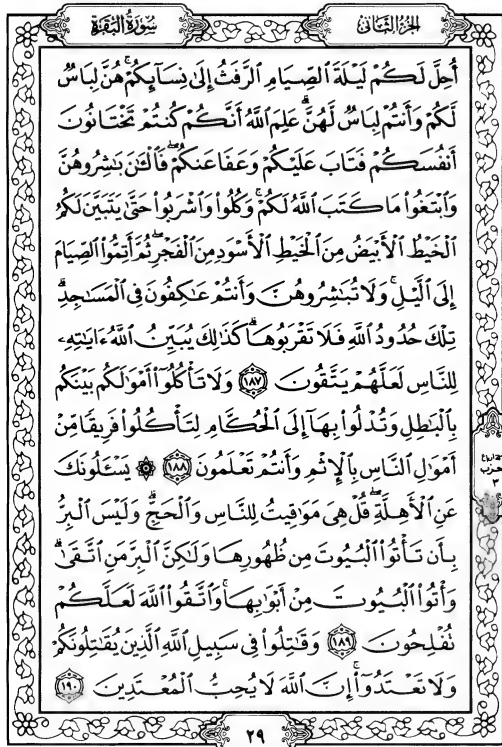 سُورَةُ الْبَقَرَةِ
الجزء الثاني
أُحِلَّ لَكُمْ لَيْلَةَ ٱلصِّيَامِ ٱلرَّفَثُ إِلَىٰ نِسَآئِكُمْ ۚ هُنَّ لِبَاسٌ
لَّكُمْ وَأَنتُمْ لِبَاسٌ لَّهُنَّ ۗ عَلِمَ ٱللَّهُ أَنَّكُمْ كُنتُمْ تَخْتَانُونَ
أَنفُسَكُمْ فَتَابَ عَلَيْكُمْ وَعَفَا عَنكُمْ ۖ فَٱلْـَٰٔنَ بَٰشِرُوهُنَّ
وَٱبْتَغُوا۟ مَا كَتَبَ ٱللَّهُ لَكُمْ ۚ وَكُلُوا۟ وَٱشْرَبُوا۟ حَتَّىٰ يَتَبَيَّنَ لَكُمُ
ٱلْخَيْطُ ٱلْأَبْيَضُ مِنَ ٱلْخَيْطِ ٱلْأَسْوَدِ مِنَ ٱلْفَجْرِ ۖ ثُمَّ أَتِمُّوا۟ ٱلصِّيَامَ
إِلَى ٱلَّيْلِ ۚ وَلَا تُبَٰشِرُوهُنَّ وَأَنتُمْ عَٰكِفُونَ فِى ٱلْمَسَٰجِدِ ۗ
تِلْكَ حُدُودُ ٱللَّهِ فَلَا تَقْرَبُوهَا ۗ كَذَٰلِكَ يُبَيِّنُ ٱللَّهُ ءَايَٰتِهِۦ
لِلنَّاسِ لَعَلَّهُمْ يَتَّقُونَ ١٨٧ وَلَا تَأْكُلُوٓا۟ أَمْوَٰلَكُم بَيْنَكُم
بِٱلْبَٰطِلِ وَتُدْلُوا۟ بِهَآ إِلَى ٱلْحُكَّامِ لِتَأْكُلُوا۟ فَرِيقًا مِّنْ
أَمْوَٰلِ ٱلنَّاسِ بِٱلْإِثْمِ وَأَنتُمْ تَعْلَمُونَ ١٨٨ ۞ يَسْـَٔلُونَكَ
عَنِ ٱلْأَهِلَّةِ ۖ قُلْ هِىَ مَوَٰقِيتُ لِلنَّاسِ وَٱلْحَجِّ ۗ وَلَيْسَ ٱلْبِرُّ
بِأَن تَأْتُوا۟ ٱلْبُيُوتَ مِن ظُهُورِهَا وَلَٰكِنَّ ٱلْبِرَّ مَنِ ٱتَّقَىٰ ۗ
وَأْتُوا۟ ٱلْبُيُوتَ مِنْ أَبْوَٰبِهَا ۚ وَٱتَّقُوا۟ ٱللَّهَ لَعَلَّكُمْ
تُفْلِحُونَ ١٨٩ وَقَٰتِلُوا۟ فِى سَبِيلِ ٱللَّهِ ٱلَّذِينَ يُقَٰتِلُونَكُمْ
وَلَا تَعْتَدُوٓا۟ ۚ إِنَّ ٱللَّهَ لَا يُحِبُّ ٱلْمُعْتَدِينَ ١٩٠
حزب
٣
٢٩